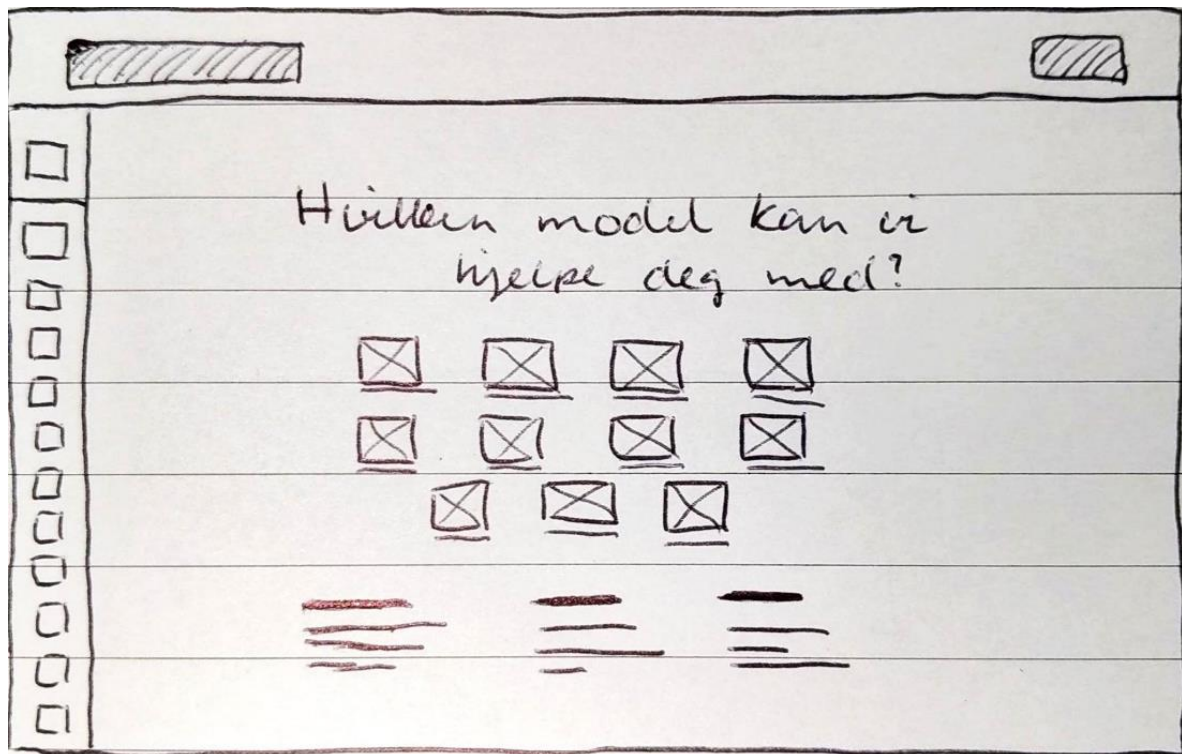 Hvilken model kan vi
hjelpe deg med?